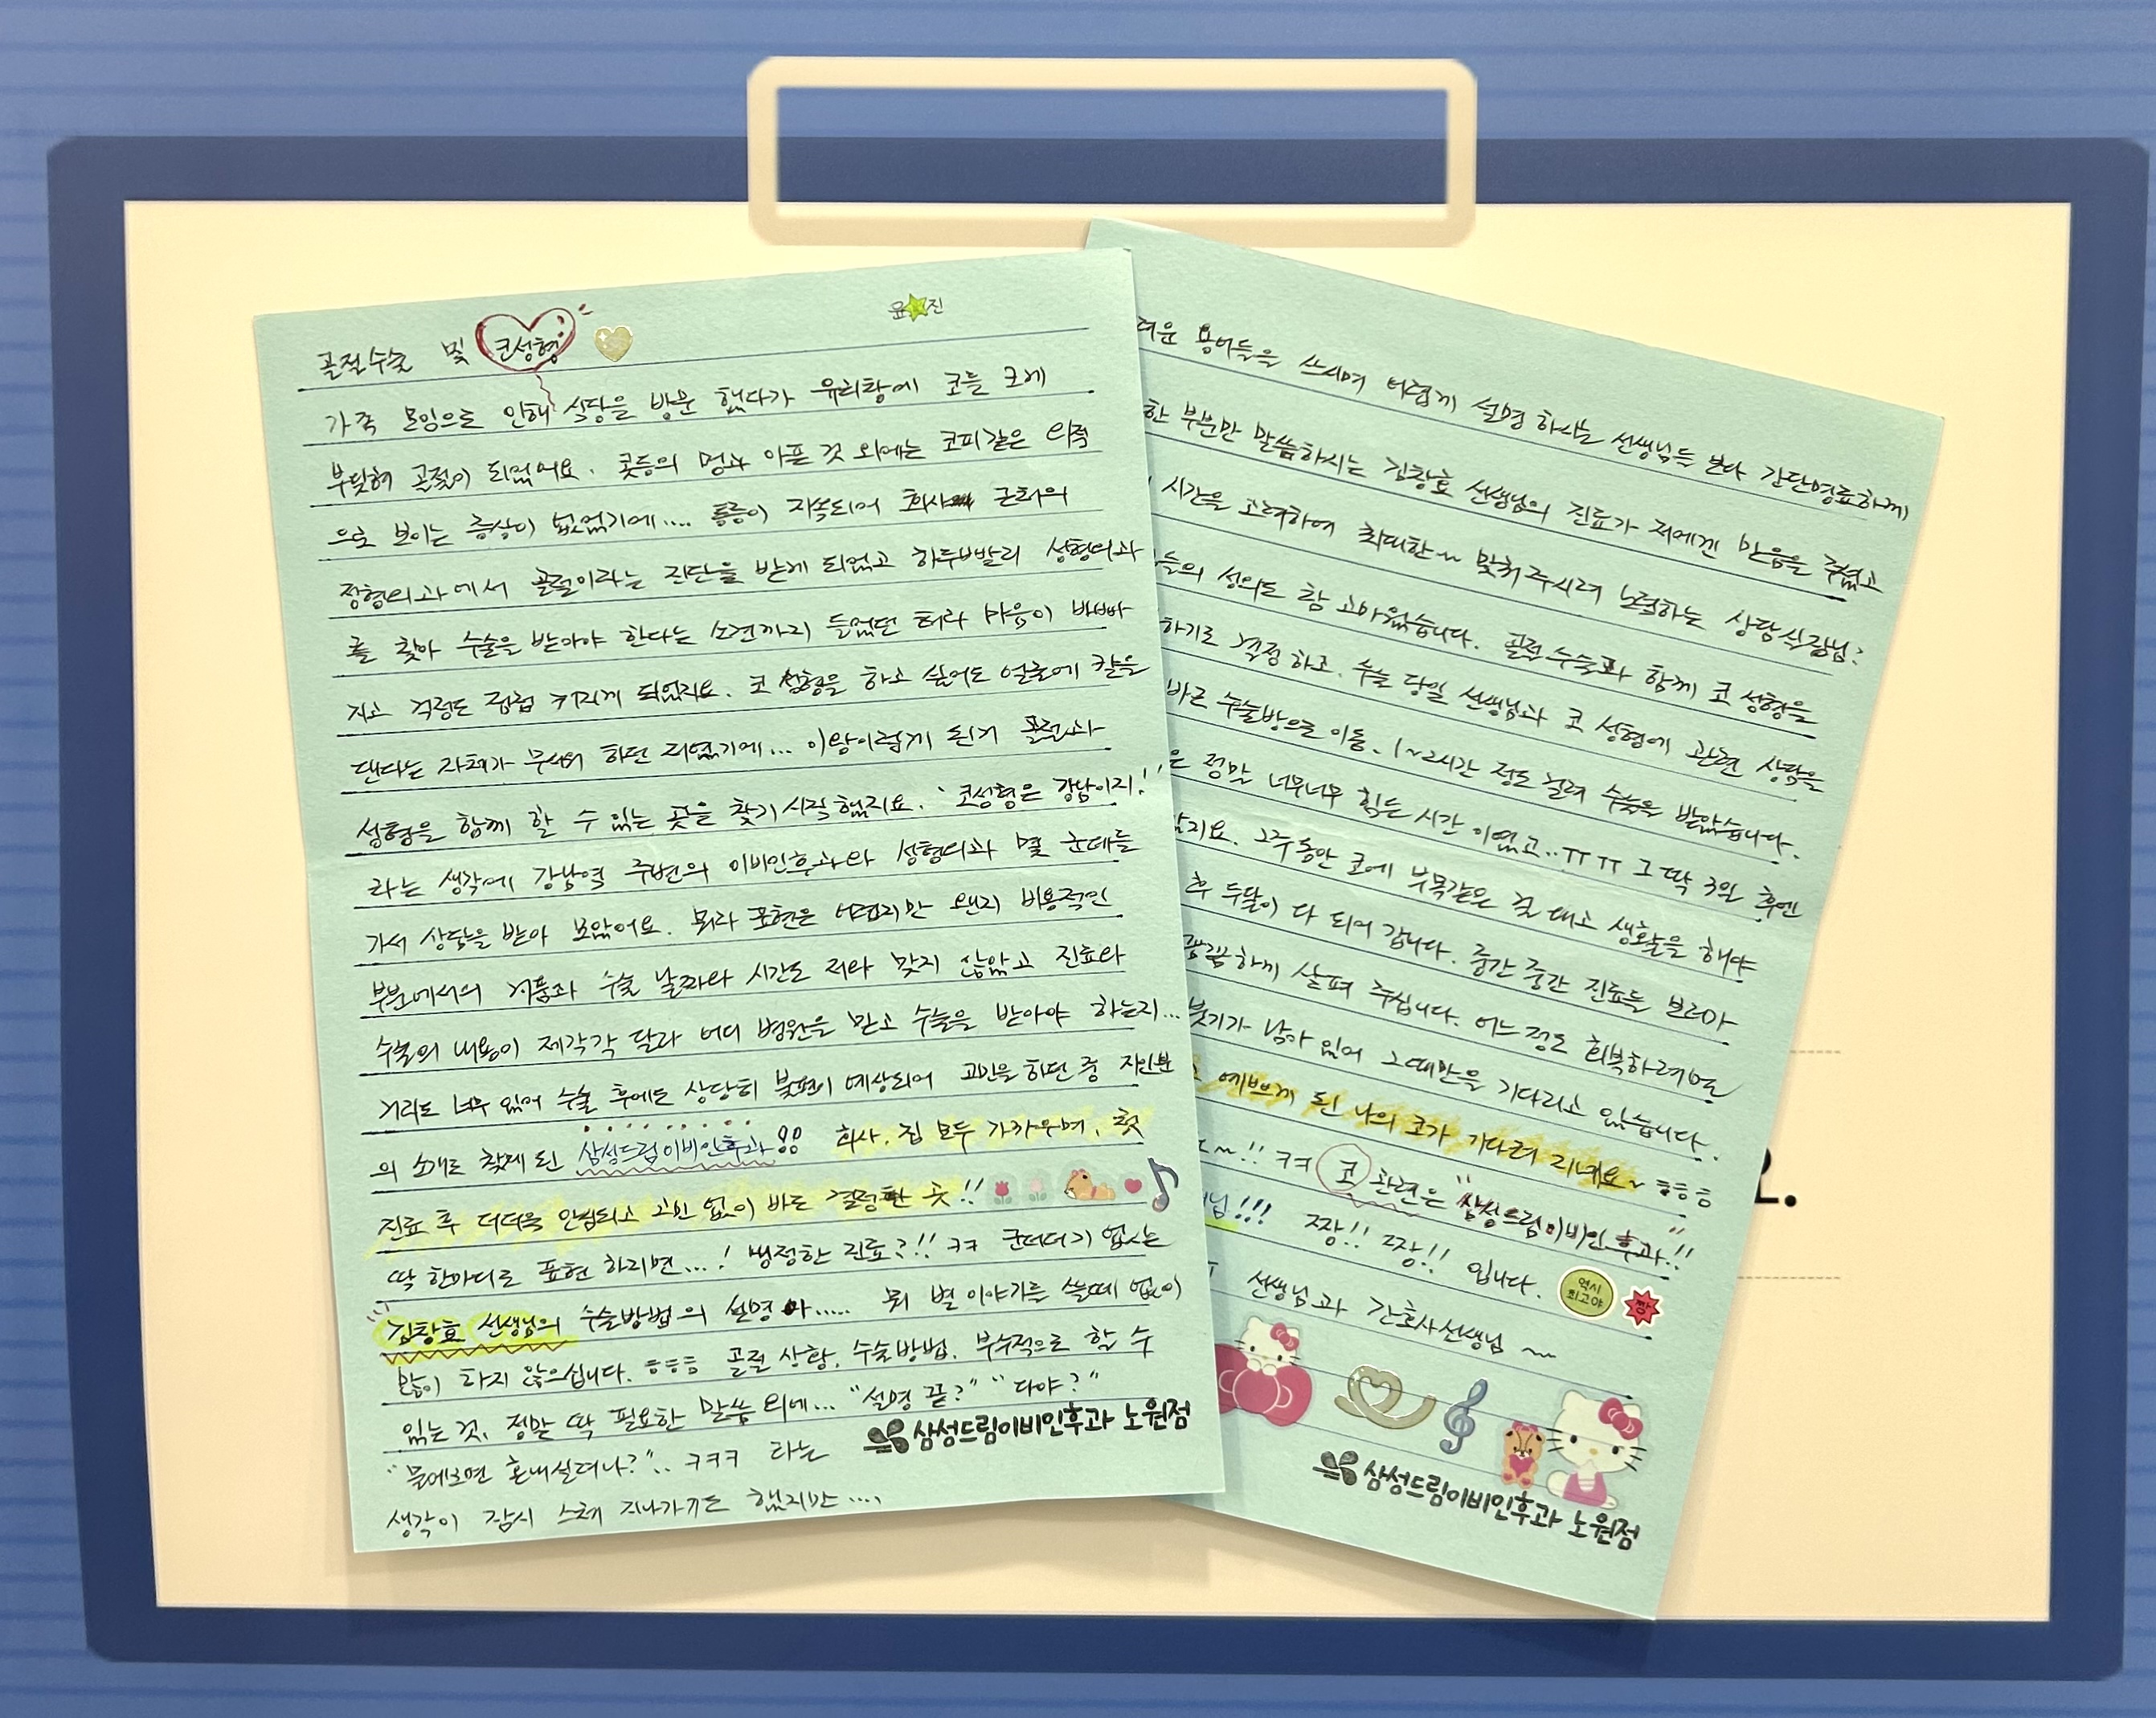 골절수술 및 코성형
윤 진
가족 모임으로 인해 식당을 방문 했다가 유리창에 코를 크게
부딪혀 골절이 되었어요. 콧등의 멍과 아픈 것 외에는 코피같은 외적
으로 보이는 증상이 없었기에.... 통증이 지속되어 회사 근처의
정형외과에서 골절이라는 진단을 받게 되었고 하루빨리 성형외과
를 찾아 수술을 받아야 한다는 소견까지 들었던 터라 마음이 바빠
지고 걱정도 점점 커지게 되었지요. 코 성형을 하고 싶어도 얼굴에 칼을
댄다는 자체가 무서워 하던 저였기에... 이왕이렇게 된거 골절과
성형을 함께 할 수 있는 곳을 찾기 시작 했지요. '코성형은 강남이지!'
라는 생각에 강남역 주변의 이비인후과와 성형외과 몇 군데를
가서 상담을 받아 보았어요. 뭐라 표현은 어렵지만 왠지 비용적인
부분에서의 거품과 수술 날짜와 시간도 저와 맞지 않았고 진료와
수술의 내용이 제각각 달라 어디 병원을 믿고 수술을 받아야 하는지...
거리도 너무 있어 수술 후에도 상당히 불편이 예상되어 고민을 하던 중 지인분
의 소개로 찾게 된 삼성드림이비인후과!! 회사, 집 모두 가까우며, 첫
진료 후 더더욱 안심되고 고민 없이 바로 결정한 곳!!
딱 한마디로 표현 하라면...! 냉정한 진료?!! ㅋㅋ 군더더기 없는
김창호 선생님의 수술방법의 설명 아..... 뭐 별 이야기를 쓸떼 없이
많이 하지 않으십니다. ㅎㅎㅎ 골절 상황, 수술방법, 부수적으로 할 수
있는 것, 정말 딱 필요한 말씀 외에... "설명 끝?" "다야?"
"물어보면 혼내실려나?".. ㅋㅋㅋ 라는
생각이 잠시 스쳐 지나가기도 했지만....,
삼성드림이비인후과 노원점
려운 용어들을 쓰시며 어렵게 설명 하시는 선생님들 보다 간단명료하게
한 부분만 말씀하시는 김창호 선생님의 진료가 저에겐 믿음을 주었고
시간을 고려하여 최대한~ 맞춰주시려 노력하는 상담실장님:
들의 성의도 참 고마웠습니다. 골절 수술과 함께 코 성형을
하기로 결정 하고. 수술 당일 선생님과 코 성형에 관련 상담을
바로 수술방으로 이동. 1~2시간 정도 걸려 수술을 받았습니다.
은 정말 너무너무 힘든 시간 이였고..ㅠㅠ 그 딱 3일 후엔
지요. 그주동안 코에 부목같은 걸 대고 생활을 해야
후 두달이 다 되어 갑니다. 중간 중간 진료를 보러가
꼼꼼하게 살펴 주십니다. 어느정도 회복하려면
붓기가 남아 있어 그때만을 기다리고 있습니다.
예쁘게 된 나의 코가 기다려 지네요~ ㅎㅎㅎ
~!! ㅋㅋ 코 관련은 "삼성드림이비인후과"!!
님!!! 짱!! 짱!! 입니다. 역시 최고야 짱
선생님과 간호사선생님 ~
삼성드림이비인후과 노원점
2.